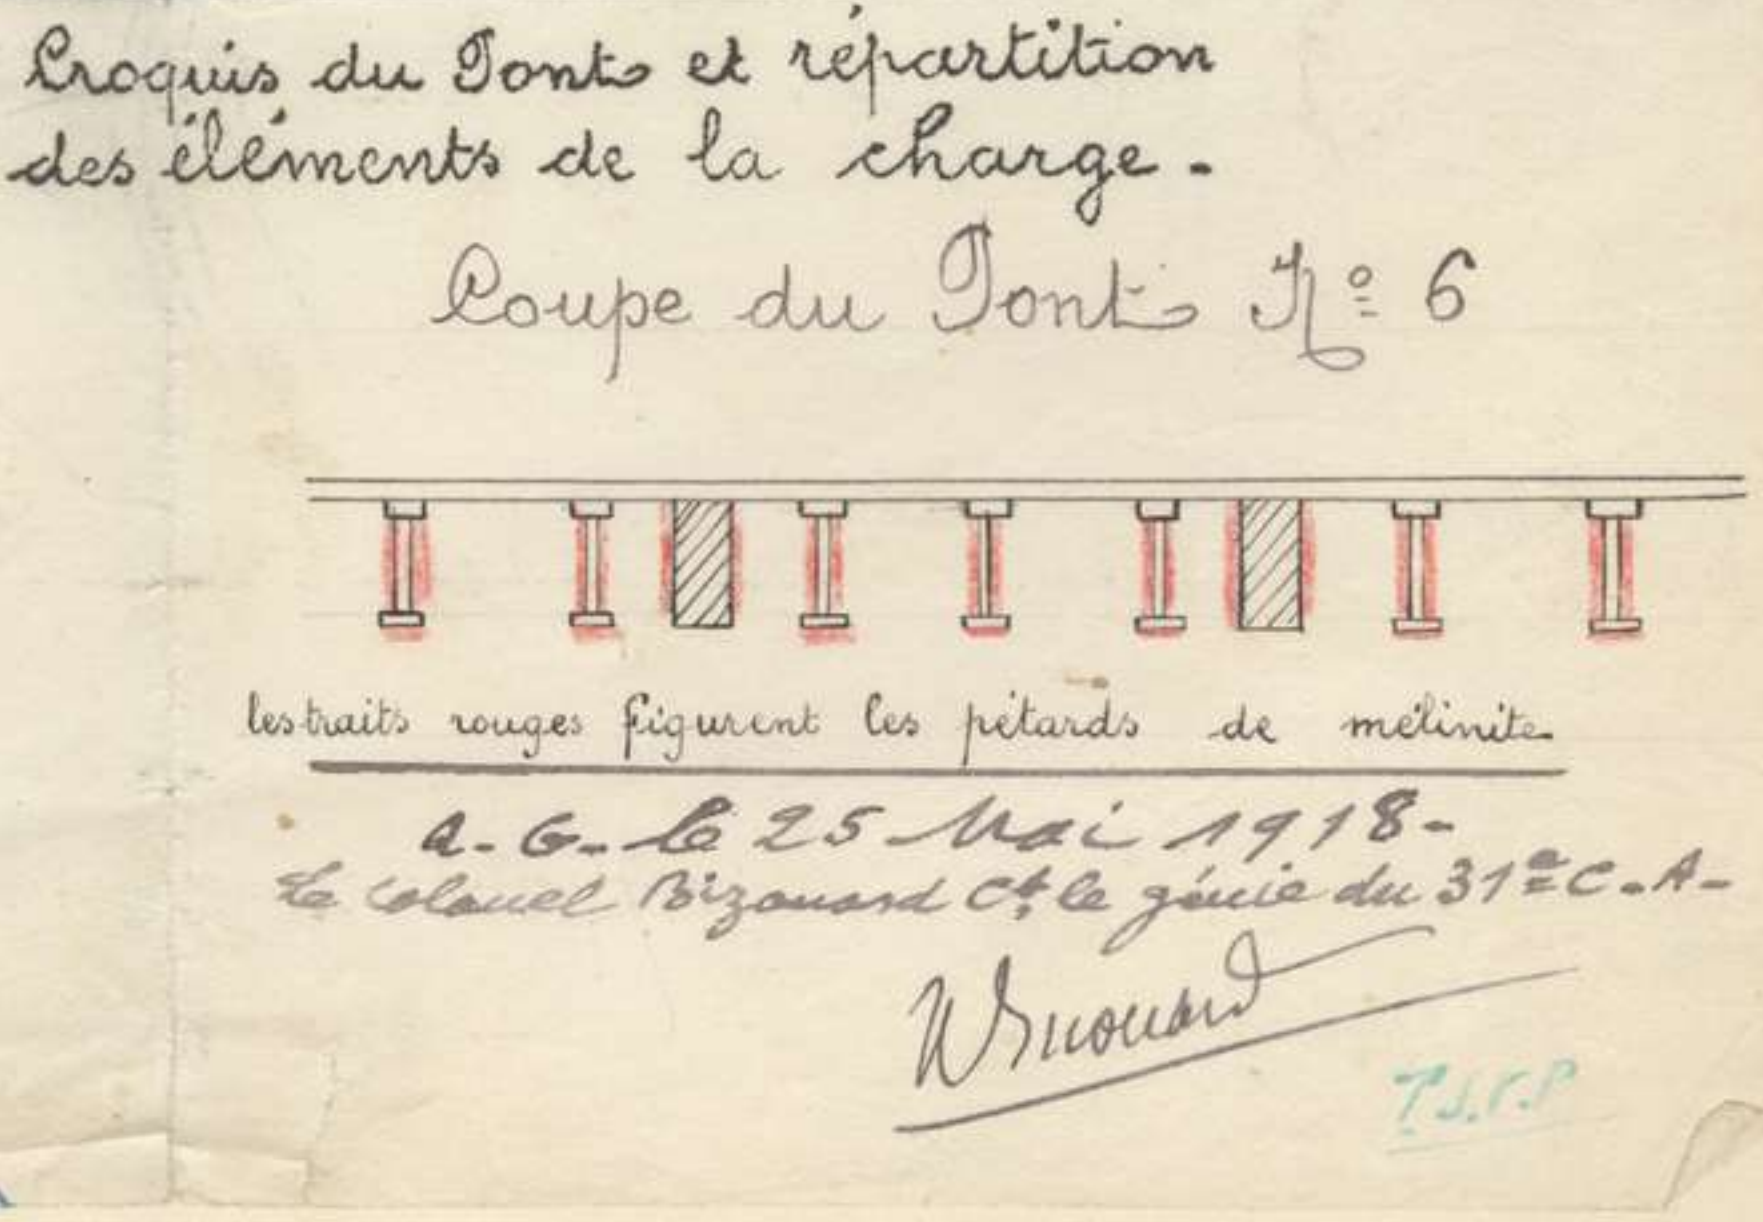 Croquis du Pont et répartition
des éléments de la charge.
Coupe du Pont No 6
les traits rouges figurent les pétards de mélinite
Q. G. le 25 Mai 1918-
Le Colonel Bizouard Ct le génie du 31e C. A-